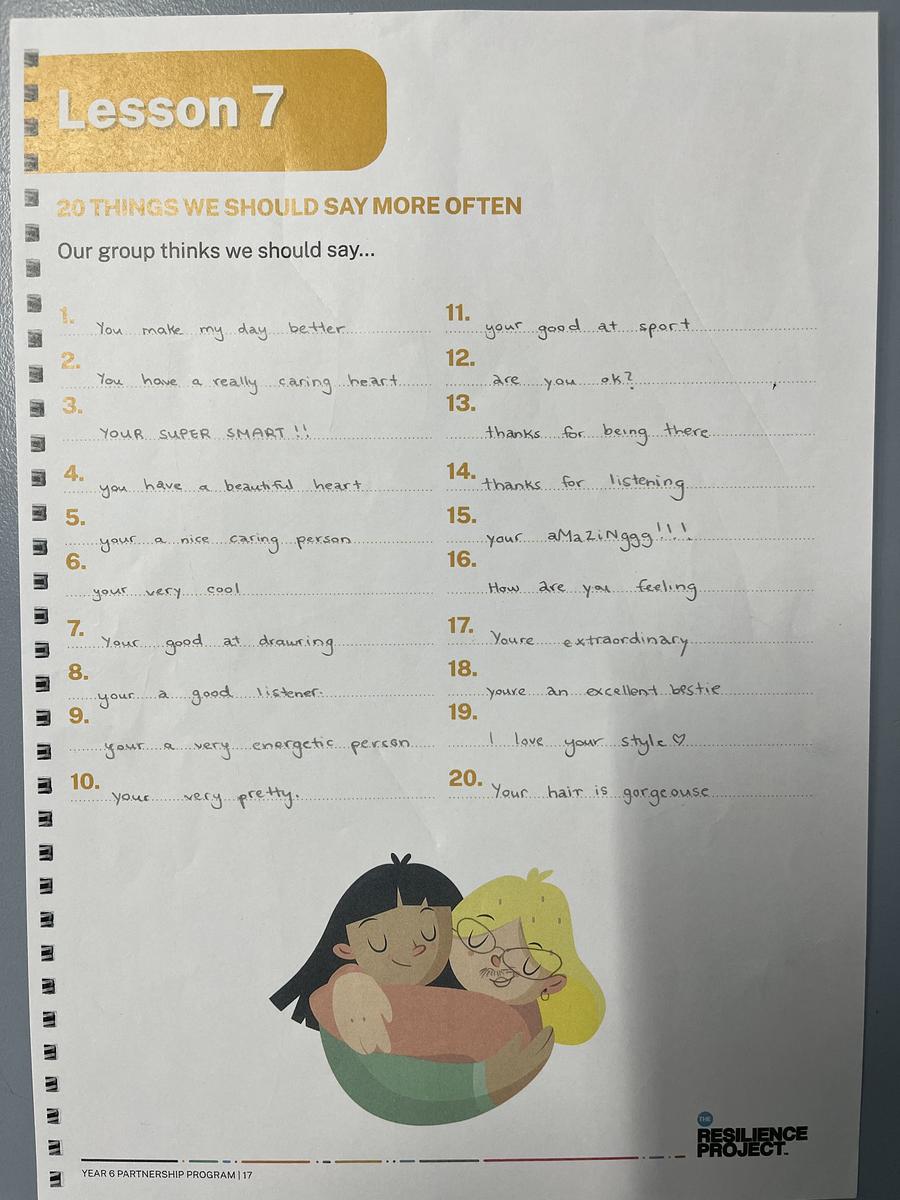 Lesson 7
20 THINGS WE SHOULD SAY MORE OFTEN
Our group thinks we should say...
1. You make my day better
2. You have a really caring heart
3. YOUR SUPER SMART !!
4. you have a beautiful heart
5. your a nice caring person
6. your very cool
7. Your good at drawring
8. your a good listener.
9. your a very energetic person
10. your very pretty.
11. your good at sport
12. are you ok?
13. thanks for being there
14. thanks for listening
15. your aMaZiNggg!!!
16. How are you feeling
17. Youre extraordinary
18. youre an excellent bestie
19. I love your style ♡
20. Your hair is gorgeouse
THE
RESILIENCE
PROJECT™
YEAR 6 PARTNERSHIP PROGRAM | 17